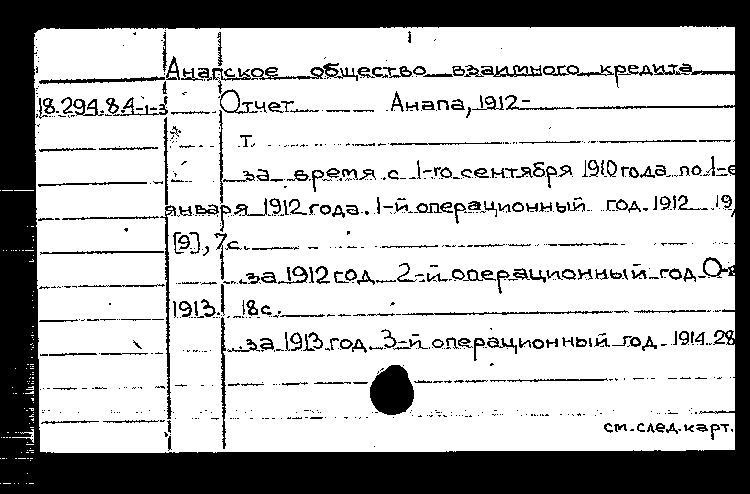 Анапское общество взаимного кредита
18.294.8.4-1-3 Отчет. Анапа, 1912-
т.
за время с 1-го сентября 1910 года по 1-е
января 1912 года. 1-й операционный год. 1912
[9], 7с.
за 1912 год 2-й операционный год
1913. 18с.
за 1913 год 3-й операционный год. 1914 28
см. след. карт.